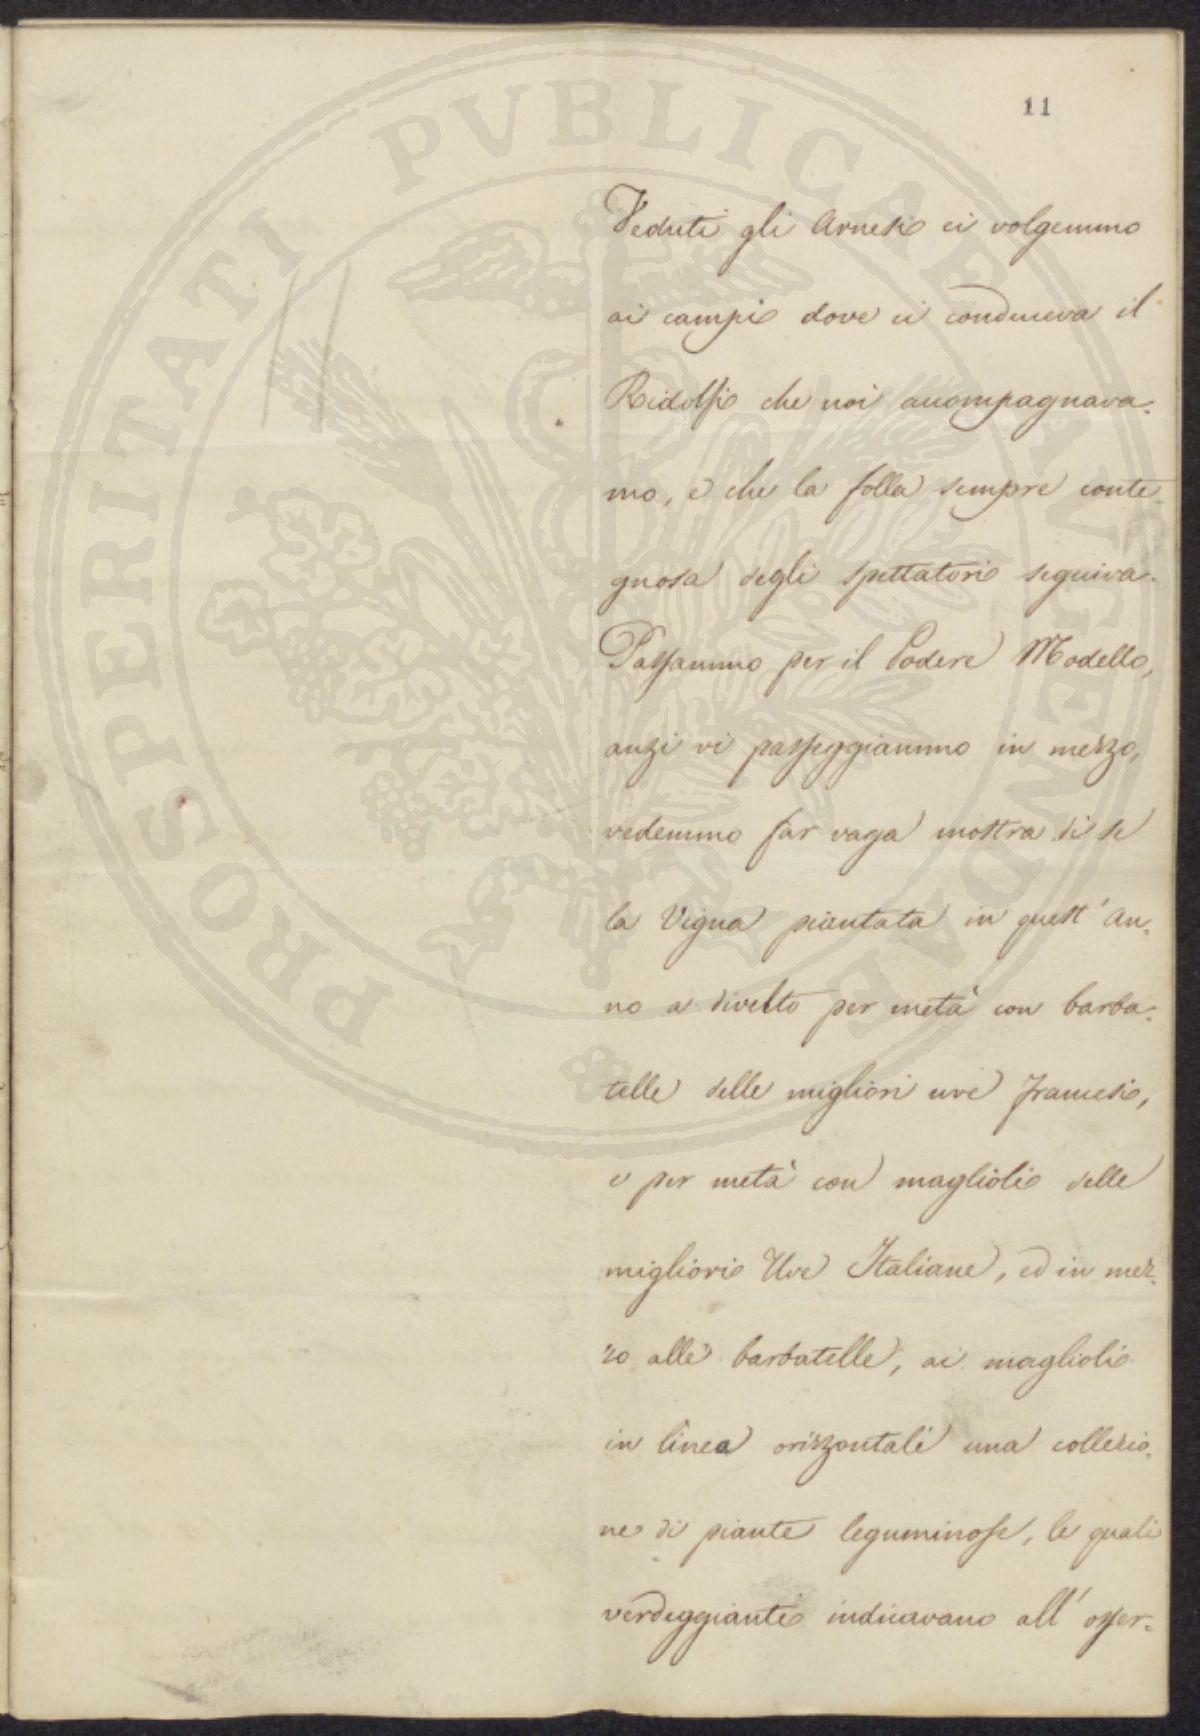 PROSPERITATI PVBLICAE AVGENDAE
11
Veduti gli Arnesi ci volgemmo
ai campi dove ci conduceva il
Ridolfi che noi accompagnava-
mo, e che la folla sempre conte-
gnosa degli spettatori seguiva.
Passammo per il Podere Modello,
anzi vi passeggiammo in mezzo,
vedemmo far vaga mostra di se
la Vigna piantata in quest'An-
no a divelto per metà con barba-
telle delle migliori uve Francesi,
e per metà con maglioli delle
migliori Uve Italiane, ed in mez-
zo alle barbatelle, ai maglioli
in linea orizzontali una collezio-
ne di piante leguminose, le quali
verdeggianti indicavano all'osser-